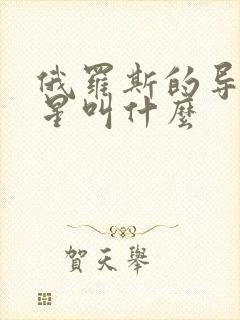 俄羅斯的导
星叫什麼
賀天舉